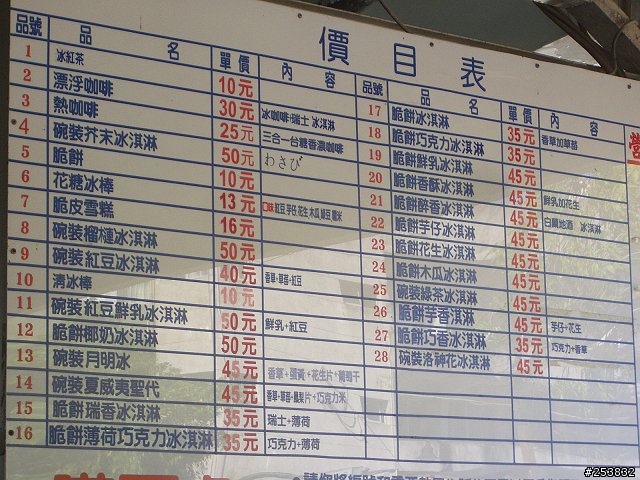 價目表
品號 品名 單價 內容
1 冰紅茶 10元
2 漂浮咖啡 30元 冰咖啡+瑞士冰淇淋
3 熱咖啡 25元 三合一台糖香濃咖啡
•4 碗裝芥末冰淇淋 50元 わさび
5 脆餅 10元
6 花糖冰棒 13元
7 脆皮雪糕 16元
8 碗裝榴槤冰淇淋 50元
•9 碗裝紅豆冰淇淋 40元 香草+草莓+紅豆
10 清冰棒 10元
11 碗裝紅豆鮮乳冰淇淋 50元 鮮乳+紅豆
12 脆餅椰奶冰淇淋 50元
13 碗裝月明冰 45元 香草+蛋黃+花生片+葡萄干
14 碗裝夏威夷聖代 45元 香草+草莓+鳳梨片+巧克力米
15 脆餅瑞香冰淇淋 35元 瑞士+薄荷
•16 脆餅薄荷巧克力冰淇淋 35元 巧克力+薄荷
品號 品名 單價 內容
17 脆餅冰淇淋 35元 香草加草莓
18 脆餅巧克力冰淇淋 35元
19 脆餅鮮乳冰淇淋 45元
20 脆餅香酥冰淇淋 45元 鮮乳加花生
21 脆餅醉香冰淇淋 45元 白蘭地酒 冰淇淋
22 脆餅芋仔冰淇淋 45元
23 脆餅花生冰淇淋 45元
24 脆餅木瓜冰淇淋 45元
25 碗裝綠茶冰淇淋 45元
26 脆餅芋香冰淇淋 45元 芋仔+花生
27 脆餅巧香冰淇淋 35元 巧克力+香草
28 碗裝洛神花冰淇淋 45元
#253832